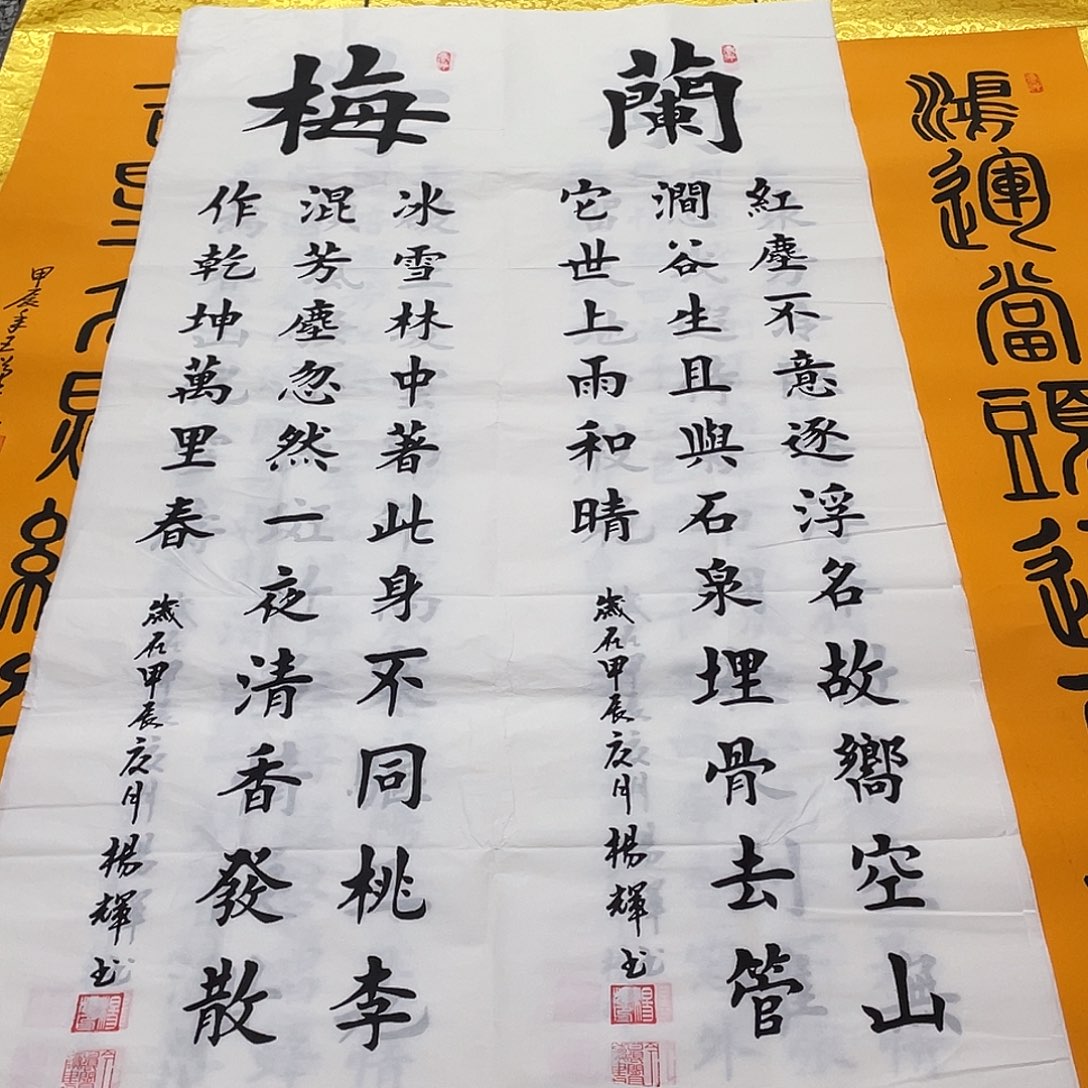 鴻運當頭
蘭
紅塵不意逐浮名故嚮空山
澗谷生且與石泉埋骨去管
它世上雨和晴
歲在甲辰夏月楊輝書
梅
冰雪林中著此身不同桃李
混芳塵忽然一夜清香發散
作乾坤萬里春
歲在甲辰夏月楊輝書
甲辰年王